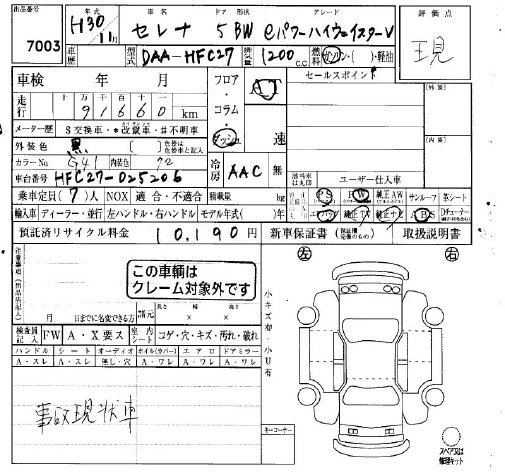 出品番号 年式 車名 ドア 形状 グレード 評価点
7003 H30年 11月 セレナ 5 BW eパワーハイウェイスターV 現
車歴 型式 DAA-HFC27 排気量 1200 C.C. 燃料 ガソリン・( )・軽油
車検 年 月 フロア・コラム・ダッシュ AT 速 セールスポイント (外装)
走行 十万千百十一
91660 km
メーター歴 S交換車・*改竄車・#不明車
外装色 黒 ( ) 色替は色替車と記入
カラーNo G41 内装色
車台番号 HFC27-025206 冷房 AAC 無 ユーザー仕入車 (内装)
乗車定員(7)人 NOX 適合・不適合 積載量 kg PS PW 純正AW サンルーフ 革シート
輸入車 ディーラー・並行 左ハンドル・右ハンドル モデル年式( )年 エアバッグ 純正TV 純正ナビ ABS
預託済リサイクル料金 10,190円 新車保証書 取扱説明書
注意事項(出品店記入)
この車輌は
クレーム対象外です
左 右
月 日までに名変できる方 諸元 長さ × 幅 × 高さ
小キズ有・小U有
検査員記入 FW A・X要ス 室内シート コゲ・穴・キズ・汚れ・破れ
ハンドル シート オーディオ ホイル(カバー) エアロ ドアミラー
A・スレ A・スレ 無し・穴 A・ワレ A・ワレ A・ワレ
事故現状車
キーコーナー
スペア又は
修理キット